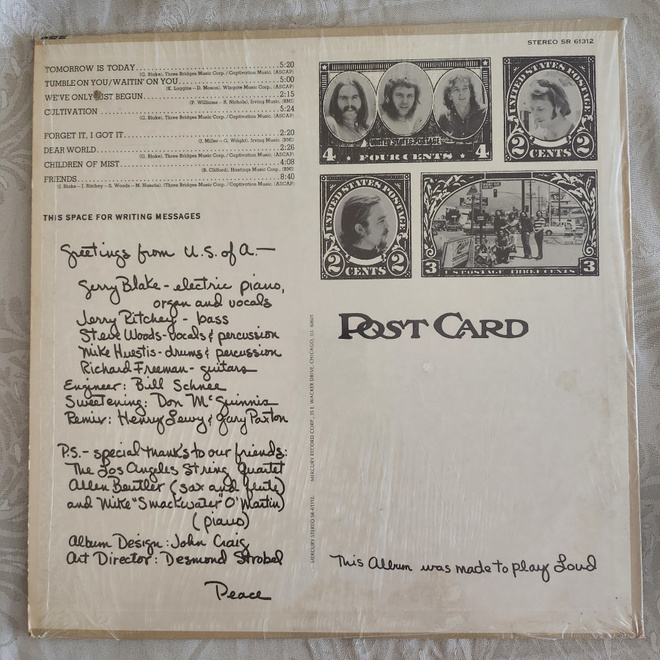 STEREO SR 61312
TOMORROW IS TODAY 5:20
(G. Blake), Three Bridges Music Corp. / Captivation Music, (ASCAP)
TUMBLE ON YOU/WAITIN' ON YOU 5:00
(K. Loggins - D. Mason), Wingate Music Corp., (ASCAP)
WE'VE ONLY JUST BEGUN 2:15
(P. Williams - R. Nichols), Irving Music, (BMI)
CULTIVATION 5:24
(G. Blake), Three Bridges Music Corp. / Captivation Music, (ASCAP)
FORGET IT, I GOT IT 2:20
(J. Miller - G. Wright), Irving Music, (BMI)
DEAR WORLD 2:26
(G. Blake), Three Bridges Music Corp. / Captivation Music, (ASCAP)
CHILDREN OF MIST 4:08
(B. Clifford), Hastings Music Corp., (BMI)
FRIENDS 8:40
Three Bridges Music Corp. / Captivation Music, (ASCAP)
THIS SPACE FOR WRITING MESSAGES
Greetings from U.S. of A.—
Gerry Blake - electric piano,
organ and vocals
Jerry Ritchey - bass
Steve Woods - vocals & percussion
Mike Huestis - drums & percussion
Richard Freeman - guitars
Engineer: Bill Schnee
Sweetening: Don McGuinnis
Remix: Henry Lewy & Gary Paxton
P.S. - special thanks to our friends:
The Los Angeles String Quartet
Allen Beutler (sax and flute)
and Mike "Smackwater" O'Martin)
(piano)
Album Design: John Craig
Art Director: Desmond Strobel
Peace
UNITED STATES POSTAGE
4 FOUR CENTS 4
UNITED STATES POSTAGE
2 CENTS 2
UNITED STATES POSTAGE
2 CENTS 2
3 U S POSTAGE THREE CENTS 3
POST CARD
MERCURY RECORD CORP., 35 E. WACKER DRIVE, CHICAGO, ILL. 60601
This Album was made to play Loud